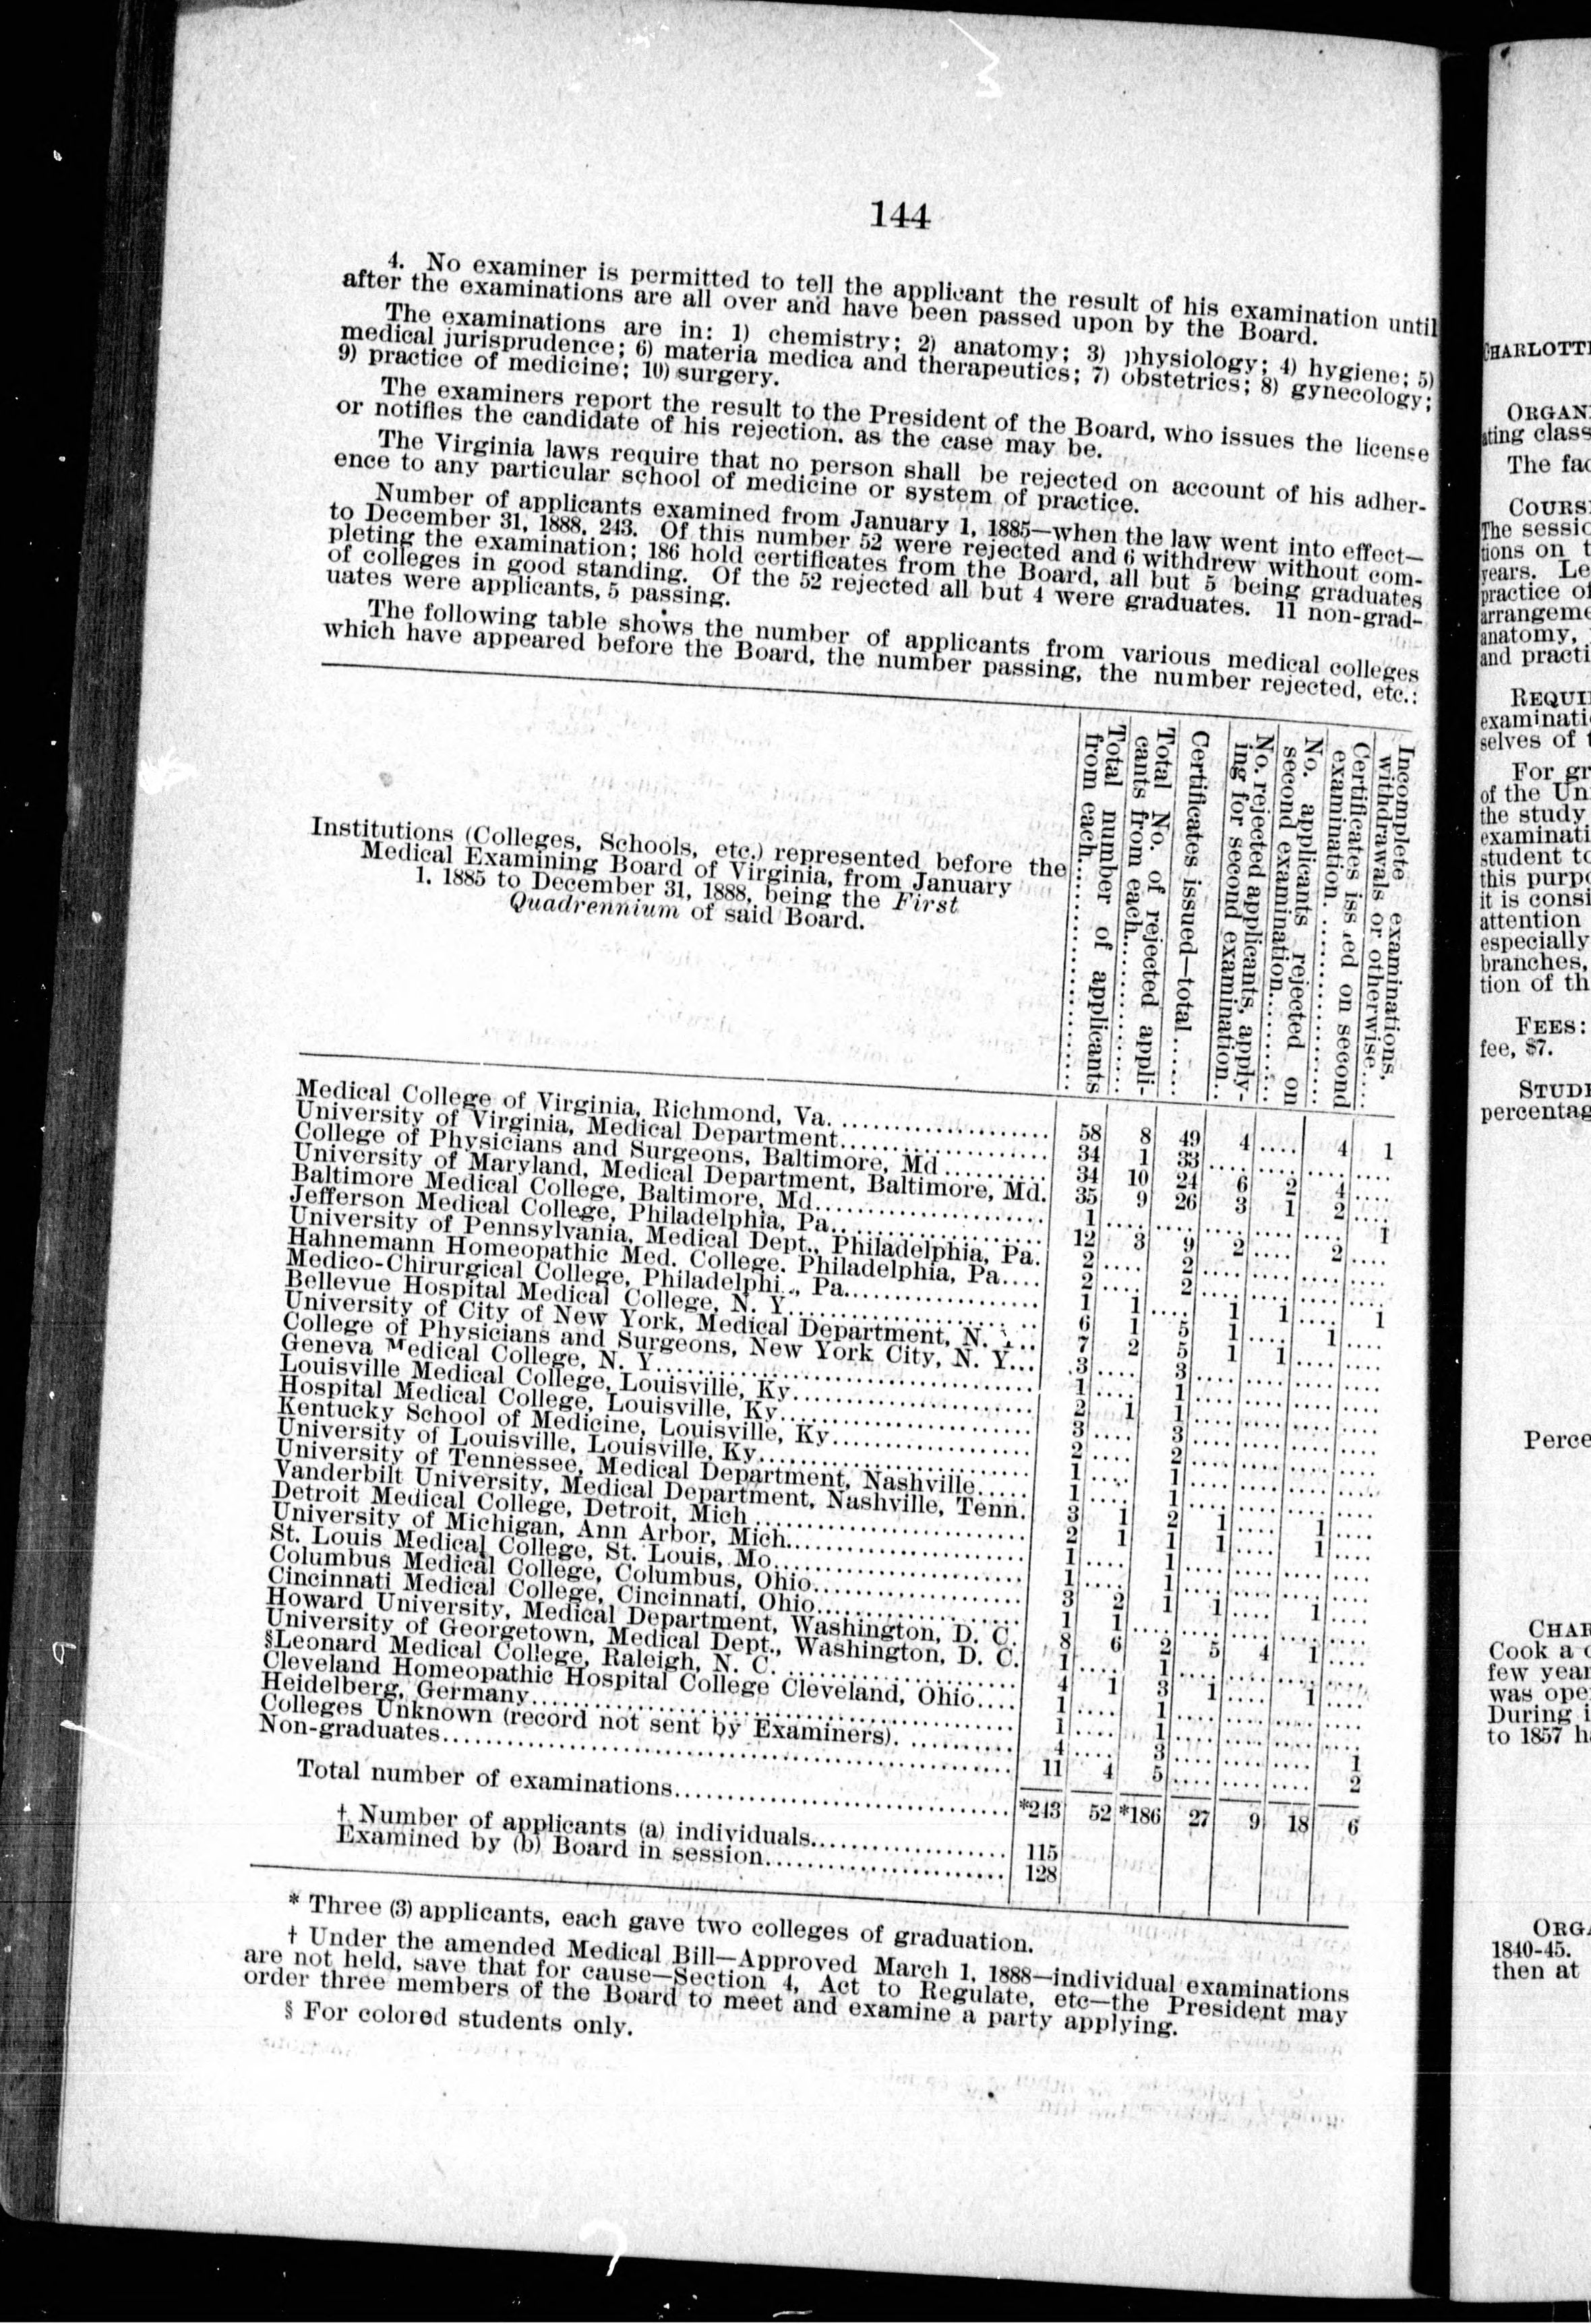 144
4. No examiner is permitted to tell the applicant the result of his examination until
after the examinations are all over and have been passed upon by the Board.
The examinations are in: 1) chemistry; 2) anatomy; 3) physiology; 4) hygiene; 5)
medical jurisprudence; 6) materia medica and therapeutics; 7) obstetrics; 8) gynecology;
9) practice of medicine; 10) surgery.
The examiners report the result to the President of the Board, who issues the license
or notifies the candidate of his rejection, as the case may be.
The Virginia laws require that no person shall be rejected on account of his adher-
ence to any particular school of medicine or system of practice.
Number of applicants examined from January 1, 1885—when the law went into effect—
to December 31, 1888, 243. Of this number 52 were rejected and 6 withdrew without com-
pleting the examination; 186 hold certificates from the Board, all but 5 being graduates
of colleges in good standing. Of the 52 rejected all but 4 were graduates. 11 non-grad-
uates were applicants, 5 passing.
The following table shows the number of applicants from various medical colleges
which have appeared before the Board, the number passing, the number rejected, etc.:
Institutions (Colleges, Schools, etc.) represented before the
Medical Examining Board of Virginia, from January
1, 1885 to December 31, 1888, being the First
Quadrennium of said Board.
Total number of applicants
from each
Total No. of rejected appli-
cants from each
Certificates issued—total
No. rejected applicants, apply-
ing for second examination
No. applicants rejected on
second examination
Certificates issued on second
examination
Incomplete examinations,
withdrawals or otherwise
Medical College of Virginia, Richmond, Va. 58 8 49 4 .... 4 1
University of Virginia, Medical Department 34 1 33 .... .... .... ....
College of Physicians and Surgeons, Baltimore, Md 34 10 24 6 2 4 ....
University of Maryland, Medical Department, Baltimore, Md. 35 9 26 3 1 2 ....
Baltimore Medical College, Baltimore, Md 1 .... .... .... .... .... 1
Jefferson Medical College, Philadelphia, Pa 12 3 9 2 .... 2 ....
University of Pennsylvania, Medical Dept., Philadelphia, Pa. 2 .... 2 .... .... .... ....
Hahnemann Homeopathic Med. College. Philadelphia, Pa 2 .... 2 .... .... .... ....
Medico-Chirurgical College, Philadelphi., Pa 1 1 .... 1 1 .... 1
Bellevue Hospital Medical College, N. Y 6 1 5 1 .... 1 ....
University of City of New York, Medical Department, N. Y 7 2 5 1 1 .... ....
College of Physicians and Surgeons, New York City, N. Y 3 .... 3 .... .... .... ....
Geneva Medical College, N. Y 1 .... 1 .... .... .... ....
Louisville Medical College, Louisville, Ky 2 1 1 .... .... .... ....
Hospital Medical College, Louisville, Ky 3 .... 3 .... .... .... ....
Kentucky School of Medicine, Louisville, Ky 2 .... 2 .... .... .... ....
University of Louisville, Louisville, Ky 1 .... 1 .... .... .... ....
University of Tennessee, Medical Department, Nashville 1 .... 1 .... .... .... ....
Vanderbilt University, Medical Department, Nashville, Tenn. 3 1 2 1 .... 1 ....
Detroit Medical College, Detroit, Mich 2 1 1 1 .... 1 ....
University of Michigan, Ann Arbor, Mich 1 .... 1 .... .... .... ....
St. Louis Medical College, St. Louis, Mo 1 .... 1 .... .... .... ....
Columbus Medical College, Columbus, Ohio 3 2 1 1 .... 1 ....
Cincinnati Medical College, Cincinnati, Ohio 1 1 .... .... .... .... ....
Howard University, Medical Department, Washington, D. C. 8 6 2 5 4 1 ....
University of Georgetown, Medical Dept., Washington, D. C. 1 .... 1 .... .... .... ....
§Leonard Medical College, Raleigh, N. C. 4 1 3 1 .... 1 ....
Cleveland Homeopathic Hospital College Cleveland, Ohio 1 .... 1 .... .... .... ....
Heidelberg, Germany 1 .... 1 .... .... .... ....
Colleges Unknown (record not sent by Examiners) 4 .... 3 .... .... .... 1
Non-graduates 11 4 5 .... .... .... 2
Total number of examinations *243 52 *186 27 9 18 6
† Number of applicants (a) individuals 115
Examined by (b) Board in session 128
* Three (3) applicants, each gave two colleges of graduation.
† Under the amended Medical Bill—Approved March 1, 1888—individual examinations
are not held, save that for cause—Section 4, Act to Regulate, etc—the President may
order three members of the Board to meet and examine a party applying.
§ For colored students only.
CHARLOTT
ORGAN
ating class
The fac
COURS
The sessi
tions on t
years. Le
practice of
arrangeme
anatomy,
and practi
REQUI
examinati
selves of t
For gr
of the Un
the study
examinati
student to
this purp
it is consi
attention
especially
branches,
tion of th
FEES:
fee, $7.
STUD
percentag
Perce
CHAR
Cook a c
few year
was ope
During i
to 1857 h
ORGA
1840-45.
then at